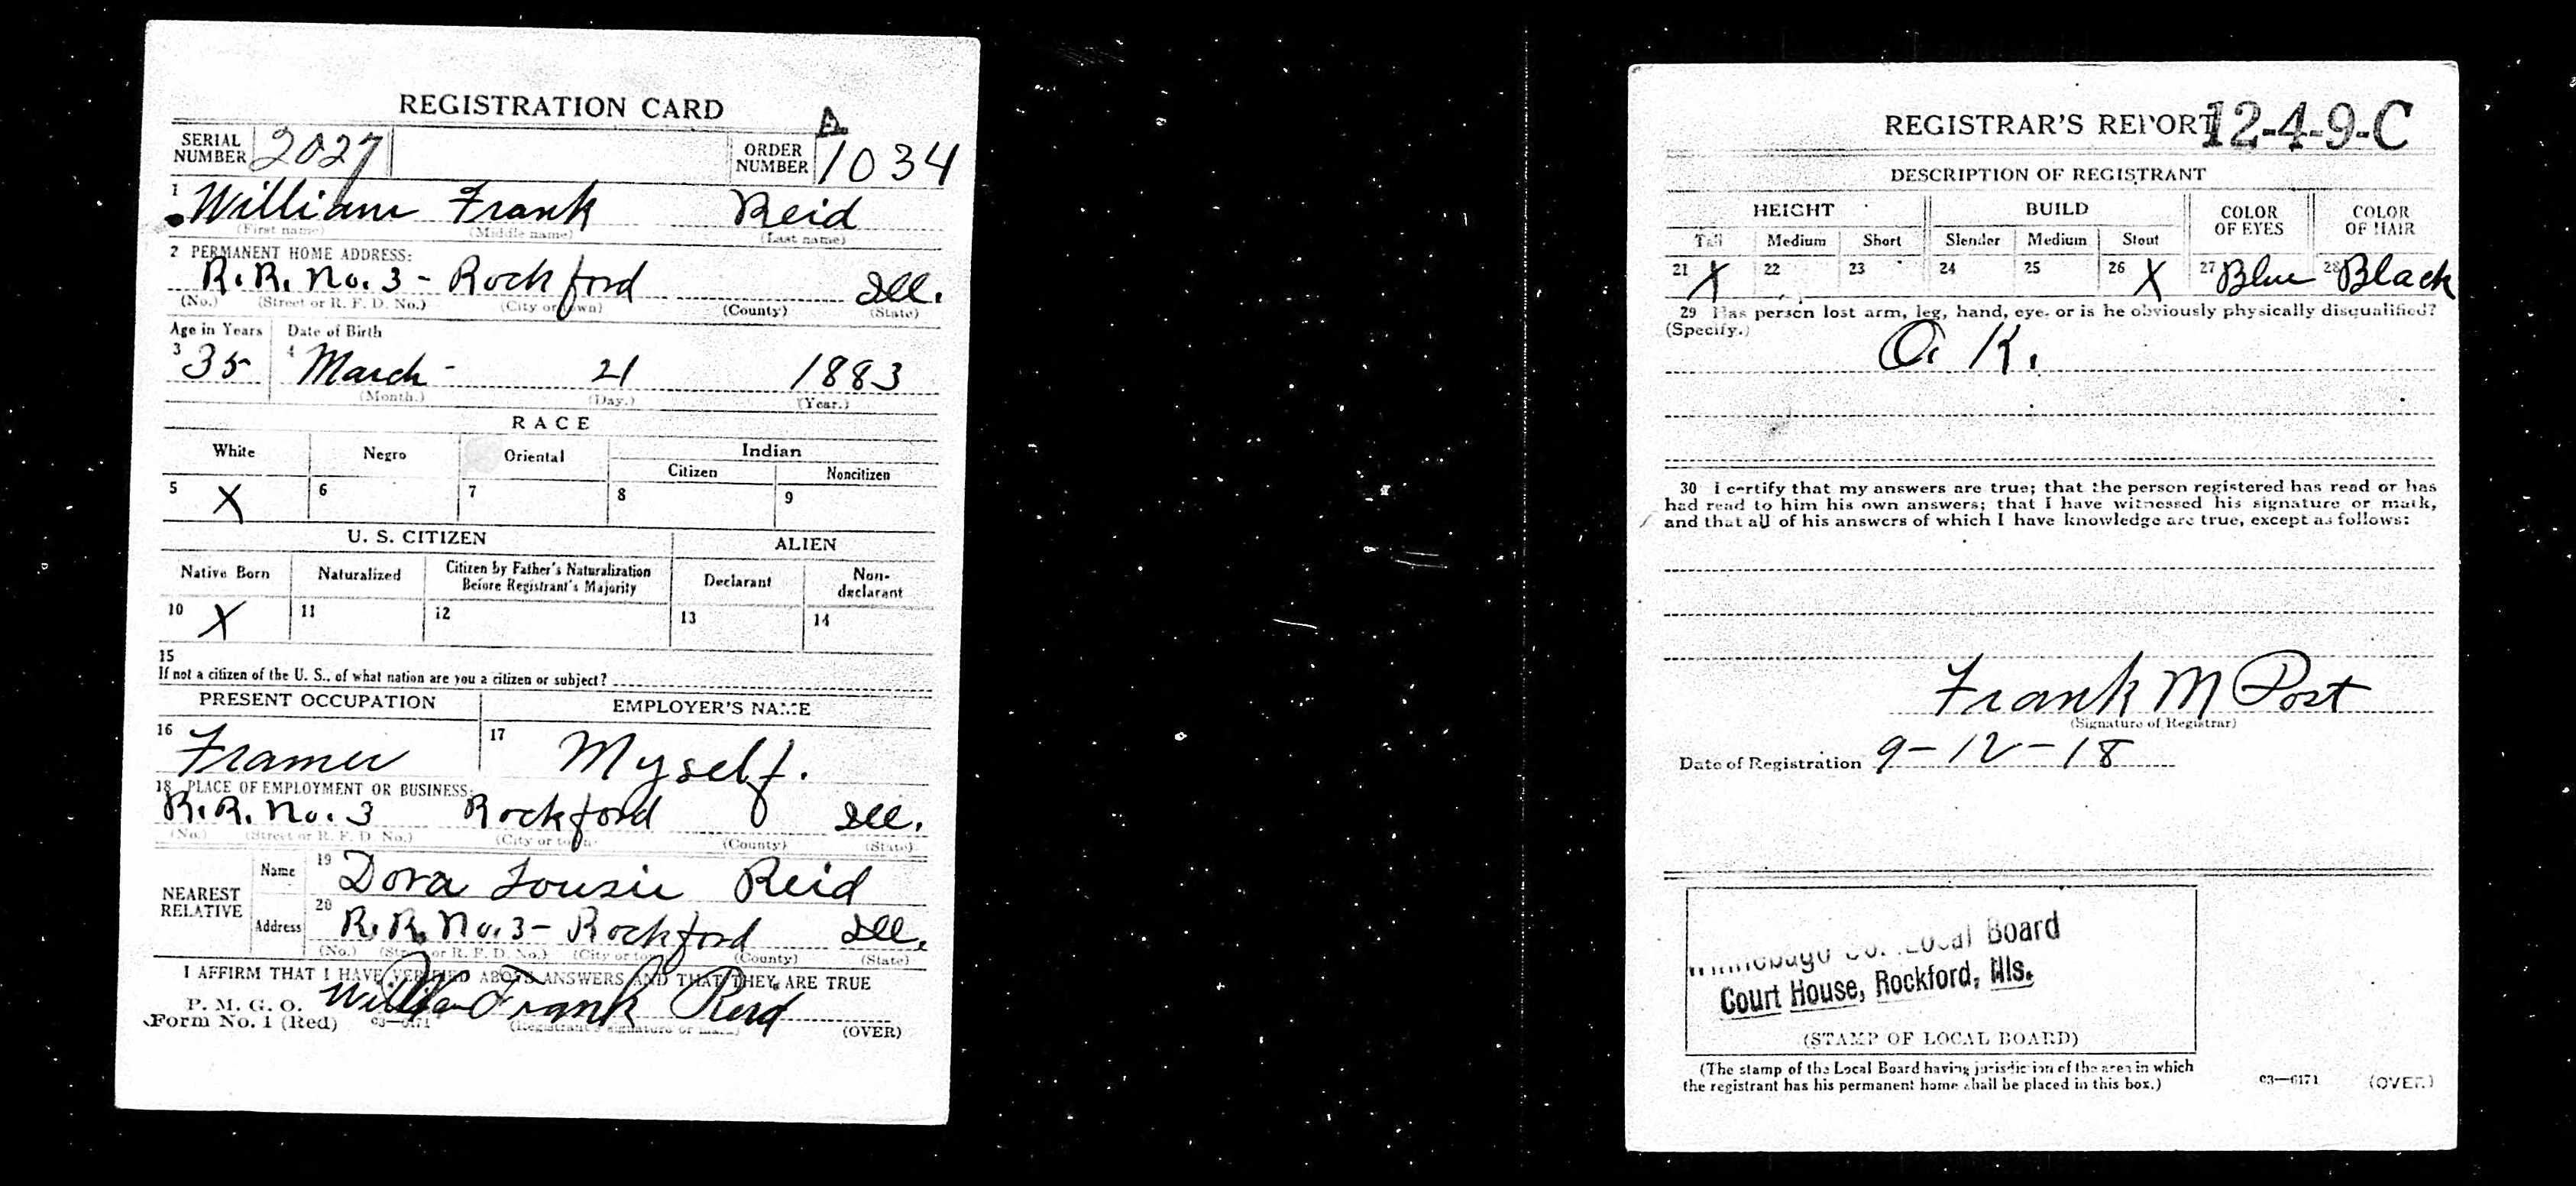 REGISTRATION CARD
SERIAL NUMBER 2027 ORDER NUMBER A 1034
1 William Frank Reid
(First name) (Middle name) (Last name)
2 PERMANENT HOME ADDRESS:
R.R. No. 3 - Rockford Ill.
(No.) (Street or R. F. D. No.) (City or town) (County) (State)
Age in Years Date of Birth
3 35 4 March - 21 1883
(Month.) (Day.) (Year.)
RACE
White Negro Oriental Indian
Citizen Noncitizen
5 X 6 7 8 9
U. S. CITIZEN ALIEN
Native Born Naturalized Citizen by Father's Naturalization Before Registrant's Majority Declarant Non-declarant
10 X 11 12 13 14
15
If not a citizen of the U. S., of what nation are you a citizen or subject?
PRESENT OCCUPATION EMPLOYER'S NAME
16 Framer 17 Myself.
18 PLACE OF EMPLOYMENT OR BUSINESS:
R.R. No. 3 Rockford Ill.
(No.) (Street or R. F. D. No.) (City or town) (County) (State)
NEAREST RELATIVE
Name 19 Dora Lousie Reid
Address 20 R.R. No. 3 - Rockford Ill.
(No.) (Street or R. F. D. No.) (City or town) (County) (State)
I AFFIRM THAT I HAVE VERIFIED ABOVE ANSWERS AND THAT THEY ARE TRUE
P. M. G. O.
Form No. 1 (Red) 03—6171 William Frank Reid
(Registrant's signature or mark) (OVER)
REGISTRAR'S REPORT 12-4-9-C
DESCRIPTION OF REGISTRANT
HEIGHT BUILD COLOR OF EYES COLOR OF HAIR
Tall Medium Short Slender Medium Stout
21 X 22 23 24 25 26 X 27 Blue 28 Black
29 Has person lost arm, leg, hand, eye, or is he obviously physically disqualified?
(Specify.)
O. K.
30 I certify that my answers are true; that the person registered has read or has
had read to him his own answers; that I have witnessed his signature or mark,
and that all of his answers of which I have knowledge are true, except as follows:
Frank M Post
(Signature of Registrar)
Date of Registration 9-12-18
Winnebago Co. Local Board
Court House, Rockford, Ills.
(STAMP OF LOCAL BOARD)
(The stamp of the Local Board having jurisdiction of the area in which
the registrant has his permanent home shall be placed in this box.)
03—6171 (OVER)